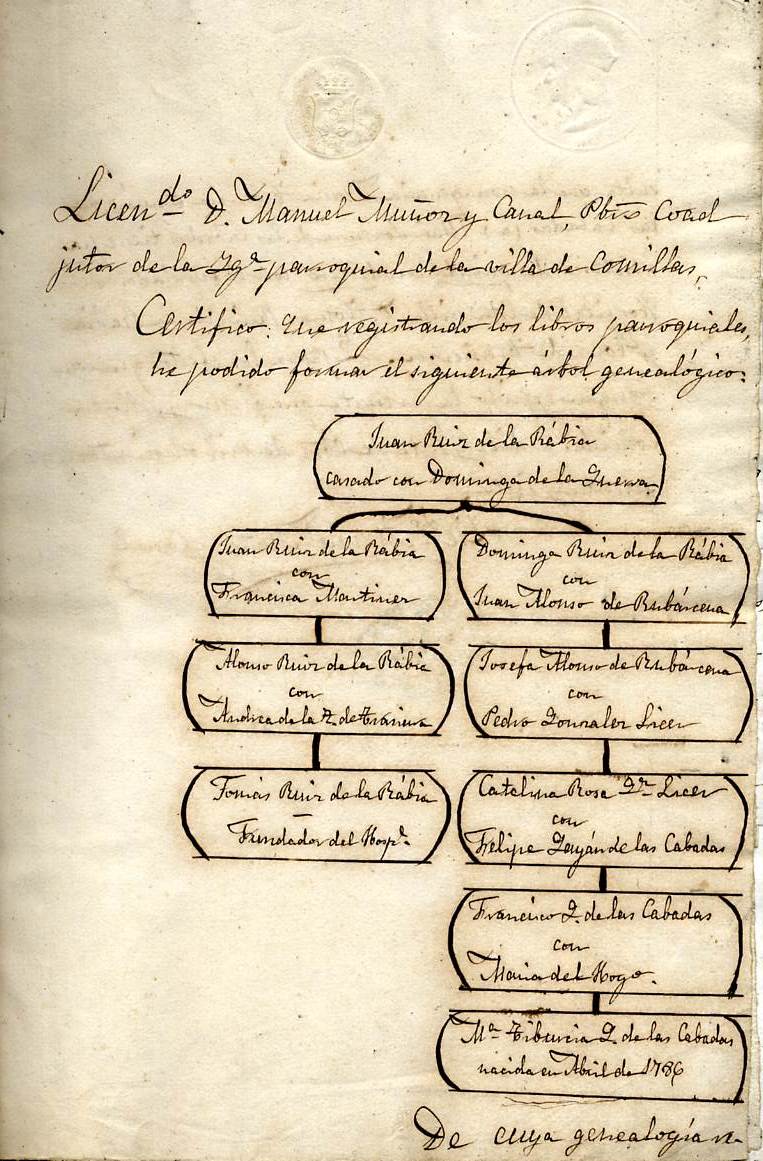 Licen<sup>do</sup> D. Manuel Muñoz y Canal, Pbr̄o Coad
jutor de la Ig<sup>a</sup> parroquial de la villa de Comillas,
Certifico: Que registrando los libros parroquiales,
he podido formar el siguiente árbol genealógico:
Juan Ruiz de la Rábia
casado con Dominga de la Guerra
Juan Ruiz de la Rábia
con
Francisca Martinez
Alonso Ruiz de la Rábia
con
Andrea de la T. de
Tomás Ruiz de la Rábia
—
Fundador del Hosp<sup>l</sup>.
Dominga Ruiz de la Rábia
con
Juan Alonso de Rubárcena
Josefa Alonso de Rubárcena
con
Pedro Gonzalez Licer
Catalina Rosa G<sup>z</sup> Licer
con
Felipe Gayán de las Cabadas
Francisco G. de las Cabadas
con
Maria del Hoyo.
M<sup>a</sup> Tiburcia G. de las Cabadas
nacida en Abril de 1786
De cuya genealogía